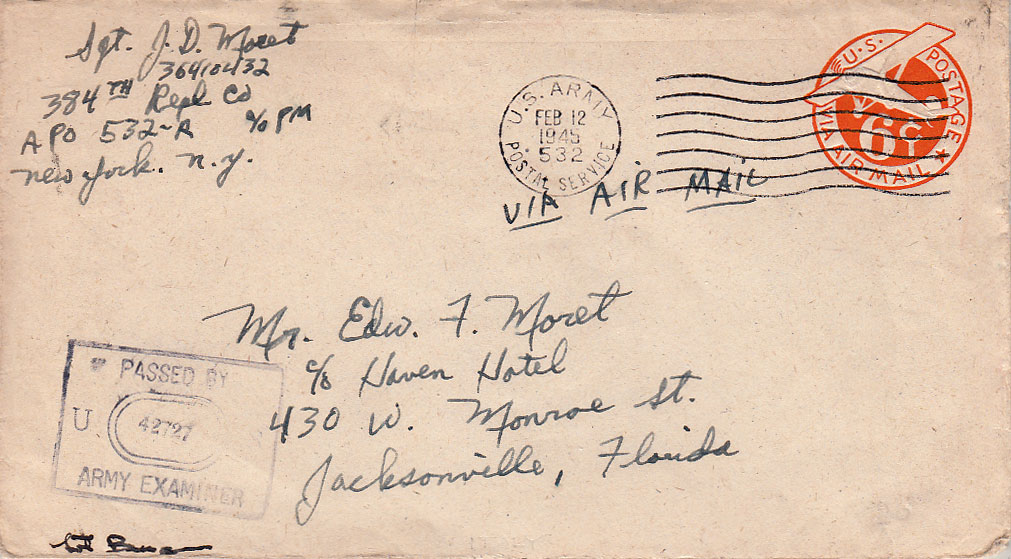 Sgt. J. D. Moret
36410432
384TH Repl Co
APO 532-A c/o PM
new york. n.y.
U.S. ARMY
FEB 12
1945
532
POSTAL SERVICE
U.S. POSTAGE
6¢
VIA AIR MAIL
VIA AIR MAIL
Mr. Edw. F. Moret
c/o Haven Hotel
430 W. Monroe St.
Jacksonville, Florida
PASSED BY
U
42727
ARMY EXAMINER